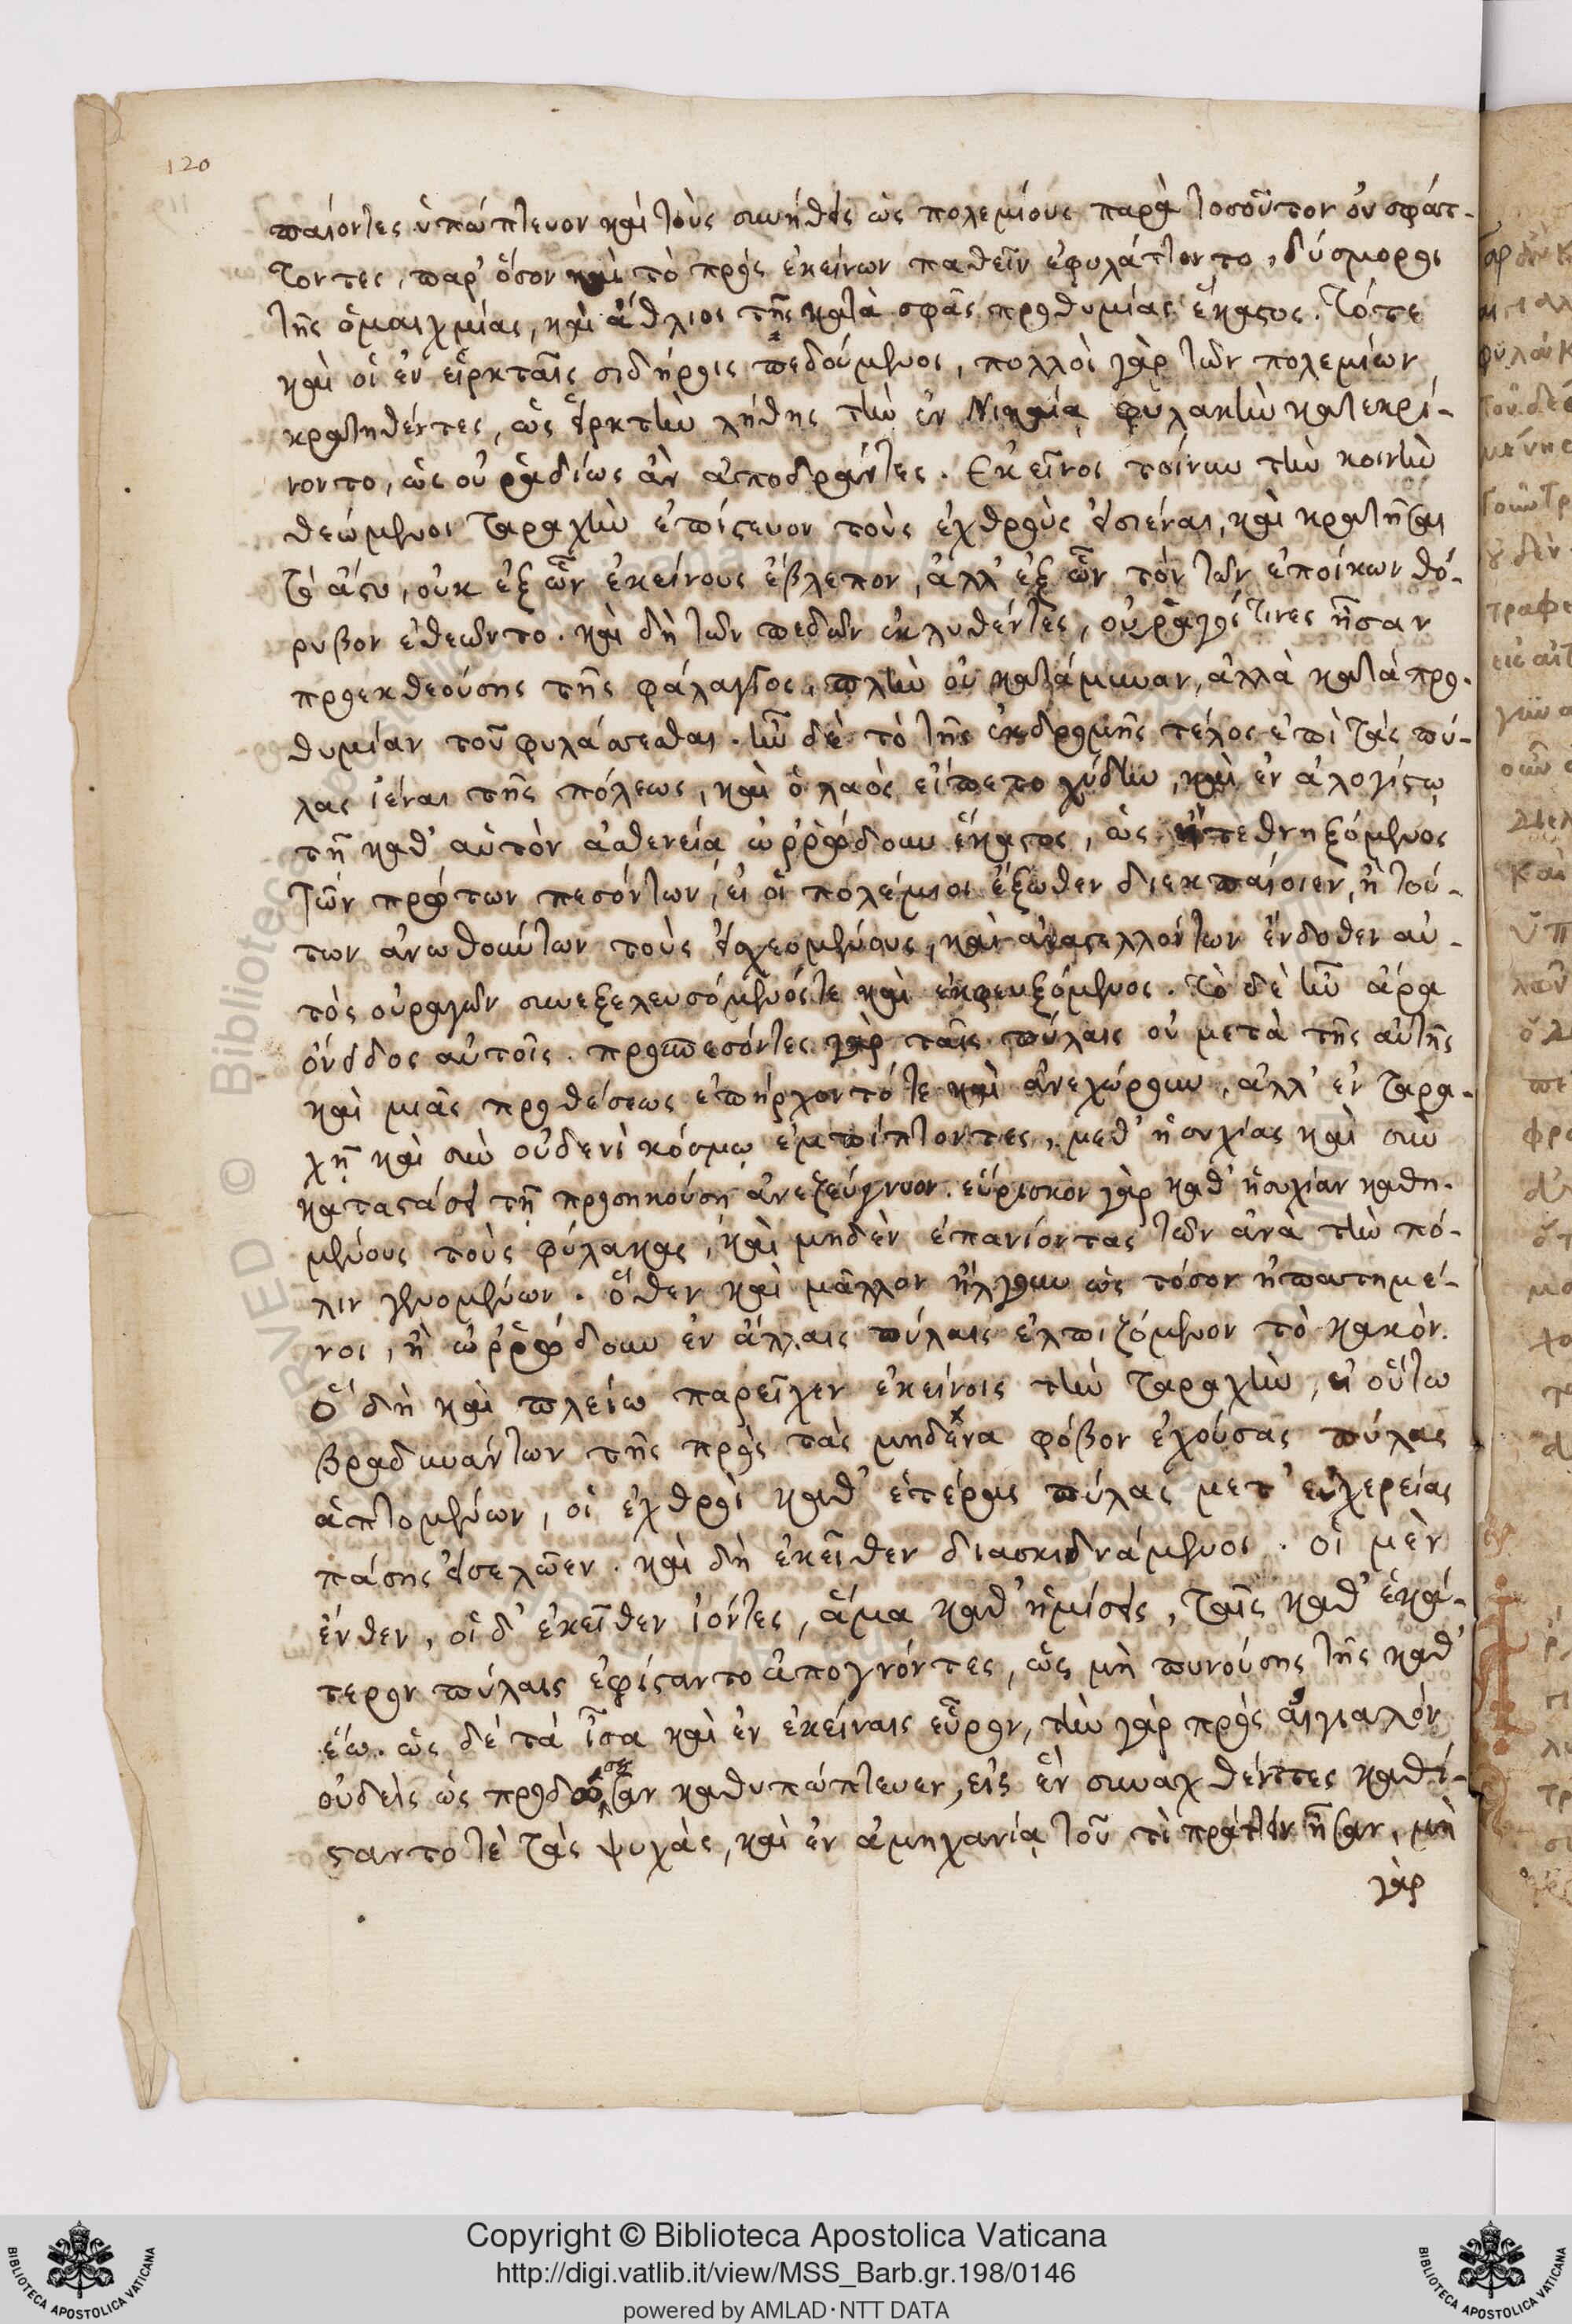 120
παίοντες ὑπώπτευον καὶ τοὺς συνήθεις ὡς πολεμίους παρὰ τοσοῦτον οὐ σφάτ-
τοντες, παρ' ὅσον καὶ τὸ πρὸς ἐκείνων παθεῖν ἐφυλάττοντο, δύσμοροι
τῆς ὁμαιχμίας, καὶ ἄθλιοι τῆς κατὰ σφᾶς προθυμίας ἕκαστος. Τότε
καὶ οἱ ἐν εἱρκταῖς σιδήροις πεδούμενοι, πολλοὶ γὰρ τῶν πολεμίων
κρατηθέντες, ὡς εἱρκτὴν λήθης τὴν ἐν Νικαίᾳ φυλακὴν κατεκρί-
νοντο, ὡς οὐ ῥᾳδίως ἂν ἀποδράντες. Ἐκεῖνοι τοίνυν τὴν κοινὴν
θεώμενοι ταραχὴν ἐπίστευον τοὺς ἐχθροὺς εἰσιέναι, καὶ κρατῆσαι
τὸ ἄστυ, οὐκ ἐξ ὧν ἐκείνους ἔβλεπον, ἀλλ' ἐξ ὧν τὸν τῶν ἐποίκων θό-
ρυβον ἐθεῶντο. καὶ δὴ τῶν πεδῶν ἐκλυθέντες, οὐραγοί τινες ἦσαν
προεκθεούσης τῆς φάλαγγος, πλὴν οὐ κατάμυναν, ἀλλὰ κατὰ προ-
θυμίαν τοῦ φυλάττεσθαι. ἦν δὲ τὸ τῆς ἐκδρομῆς τέλος ἐπὶ τὰς πύ-
λας ἰέναι τῆς πόλεως, καὶ ὁ λαὸς εἵπετο χύδην, καὶ ἐν ἀλογίστῳ
τῇ καθ' αὑτὸν ἀσθενείᾳ ὠρρώδουν ἕκαστος, ὡς ἢ τεθνηξόμενος
τῶν πρώτων πεσόντων, εἰ οἱ πολέμιοι ἔξωθεν διεκπαίοιεν, ἢ τού-
των ἀνωθούντων τοὺς εἰσχεομένους, καὶ ἀναστελλόντων ἔνδοθεν αὐ-
τὸς οὐραγῶν συνεξελευσόμενός τε καὶ ἐκφευξόμενος. Τὸ δὲ ἦν ἄρα
ὄνειδος αὐτοῖς. προσπεσόντες γὰρ ταῖς πύλαις οὐ μετὰ τῆς αὐτῆς
καὶ μιᾶς προθέσεως ἐπήρχοντό τε καὶ ἀνεχώρουν. ἀλλ' ἐν ταρα-
χῇ καὶ σὺν οὐδενὶ κόσμῳ ἐμπίπτοντες, μεθ' ἡσυχίας καὶ σὺν
καταστάσει τῇ προσηκούσῃ ἀνεζεύγνυον. εὕρισκον γὰρ καθ' ἡσυχίαν καθη-
μένους τοὺς φύλακας, καὶ μηδὲν ἐπανιόντας τῶν ἀνὰ τὴν πό-
λιν γενομένων. ὅθεν καὶ μᾶλλον ἤλγουν ὡς τόσον ἠπατημέ-
νοι, ἢ ὠρρώδουν ἐν ἄλλαις πύλαις ἐλπιζόμενον τὸ κακόν.
Ὃ δὴ καὶ πλείω παρεῖχεν ἐκείνοις τὴν ταραχὴν, εἰ οὕτω
βραδυνάντων τῆς πρὸς τὰς μηδένα φόβον ἐχούσας πύλας
ἁπτομένων, οἱ ἐχθροὶ καθ' ἑτέρας πύλας μετ' εὐχερείας
πάσης εἰσελῶεν. καὶ δὴ ἐκεῖθεν διασκιδνάμενοι. οἱ μὲν
ἔνθεν, οἱ δ' ἐκεῖθεν ἰόντες, ἅμα καθ' ἡμίσεις, ταῖς καθ' ἑκά-
τερον πύλαις ἐφίσταντο ἀπογνόντες, ὡς μὴ πυνούσης τῆς καθ'
ἕω. ὡς δὲ τὰ ἶσα καὶ ἐν ἐκείναις εὗρον, τὴν γὰρ πρὸς αἰγιαλὸν
οὐδεὶς ὡς προδώσουσαν καθυπώπτευεν, εἰς ἓν συναχθέντες καθί-
σταντο τὲ τὰς ψυχὰς, καὶ ἐν ἀμηχανίᾳ τοῦ τὶ πράττειν ἦσαν, μὴ
γὰρ
Copyright © Biblioteca Apostolica Vaticana
http://digi.vatlib.it/view/MSS_Barb.gr.198/0146
powered by AMLAD·NTT DATA
BIBLIOTECA APOSTOLICA VATICANA
BIBLIOTECA APOSTOLICA VATICANA